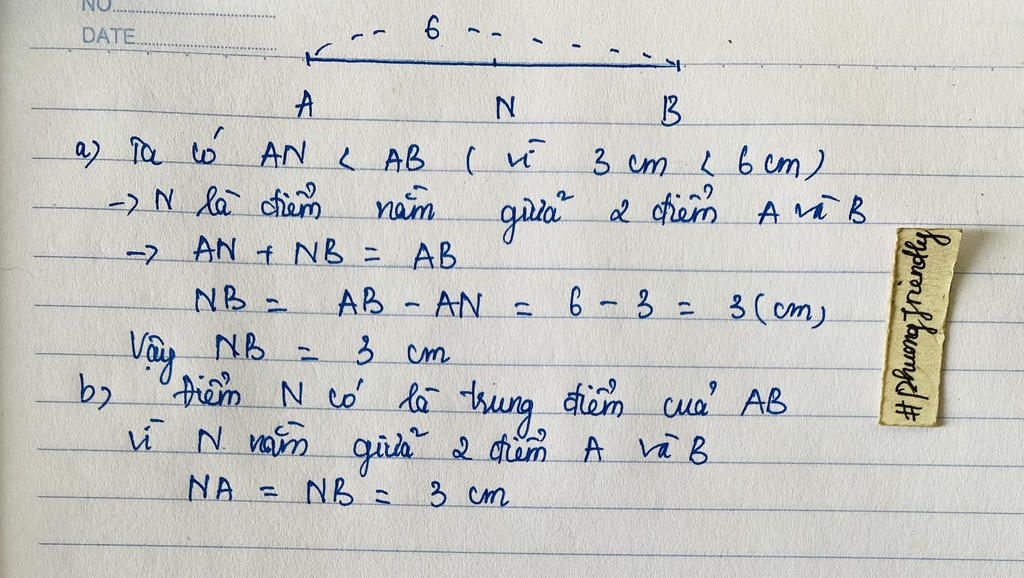 NO.
DATE
6
A N B
a) Ta có AN < AB ( vì 3 cm < 6 cm )
-> N là điểm nằm giữa 2 điểm A và B
-> AN + NB = AB
NB = AB - AN = 6 - 3 = 3 (cm)
Vậy NB = 3 cm
b) Điểm N có là trung điểm của AB
vì N nằm giữa 2 điểm A và B
NA = NB = 3 cm
#phuongfriendly